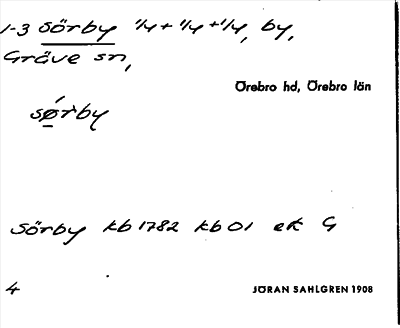 1-3 Sörby 1/4 + 1/4 + 1/4, by,
Gräve sn,
Örebro hd, Örebro län
sǿrby
Sörby kb 1782 kb 01 ek G
4
JÖRAN SAHLGREN 1908